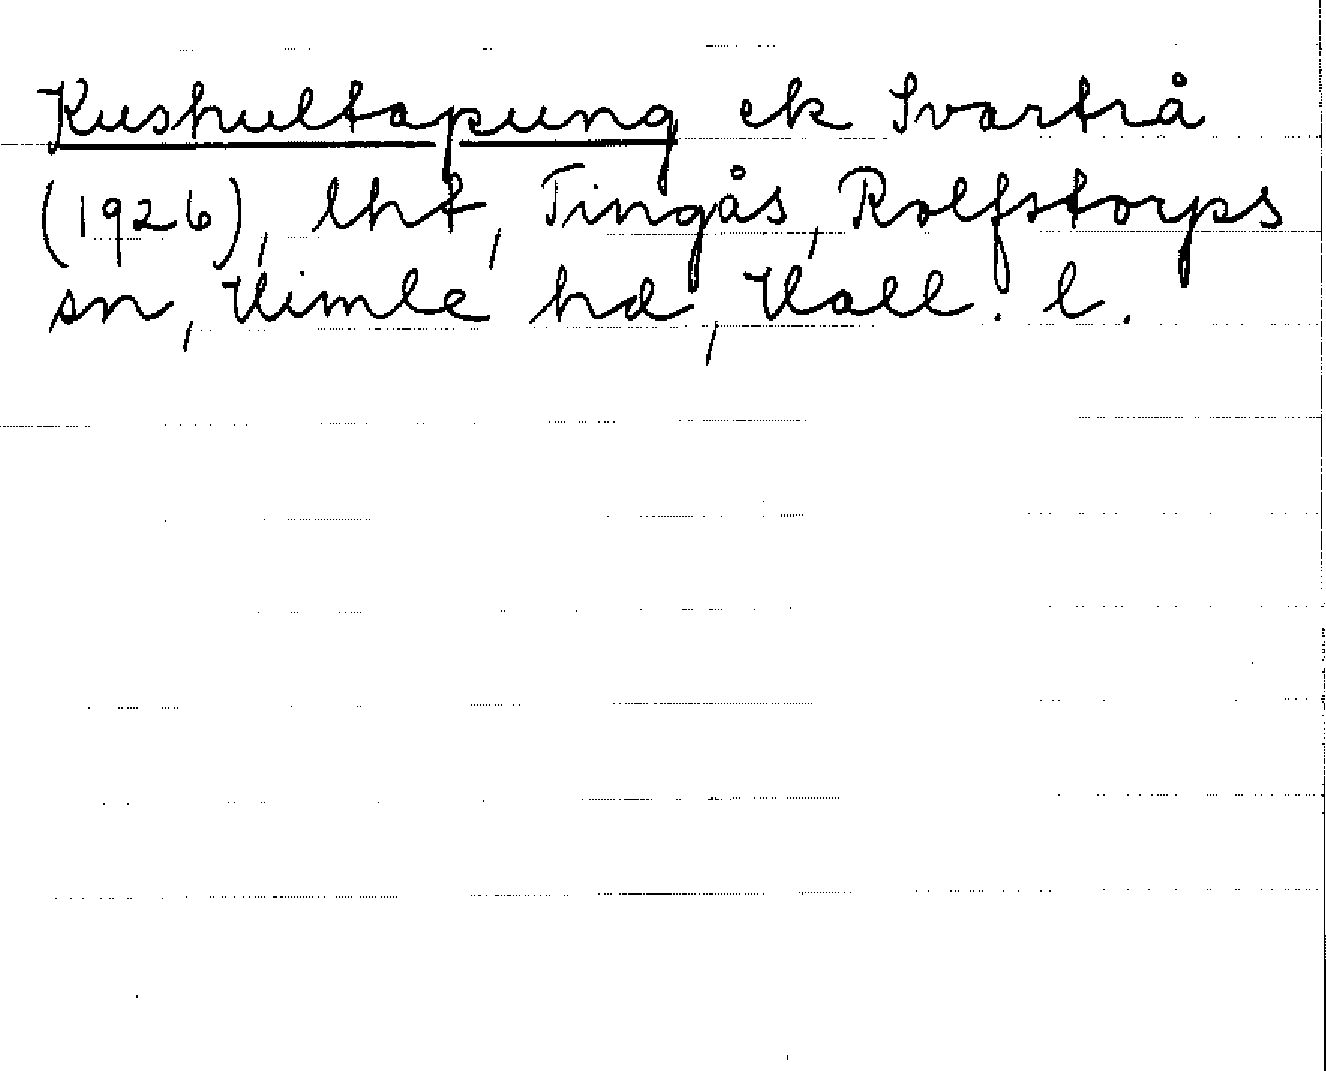 Kushultapung ek Svartrå
(1926), lht, Tingås, Rolfstorps
sn, Himle hd, Hall. l.